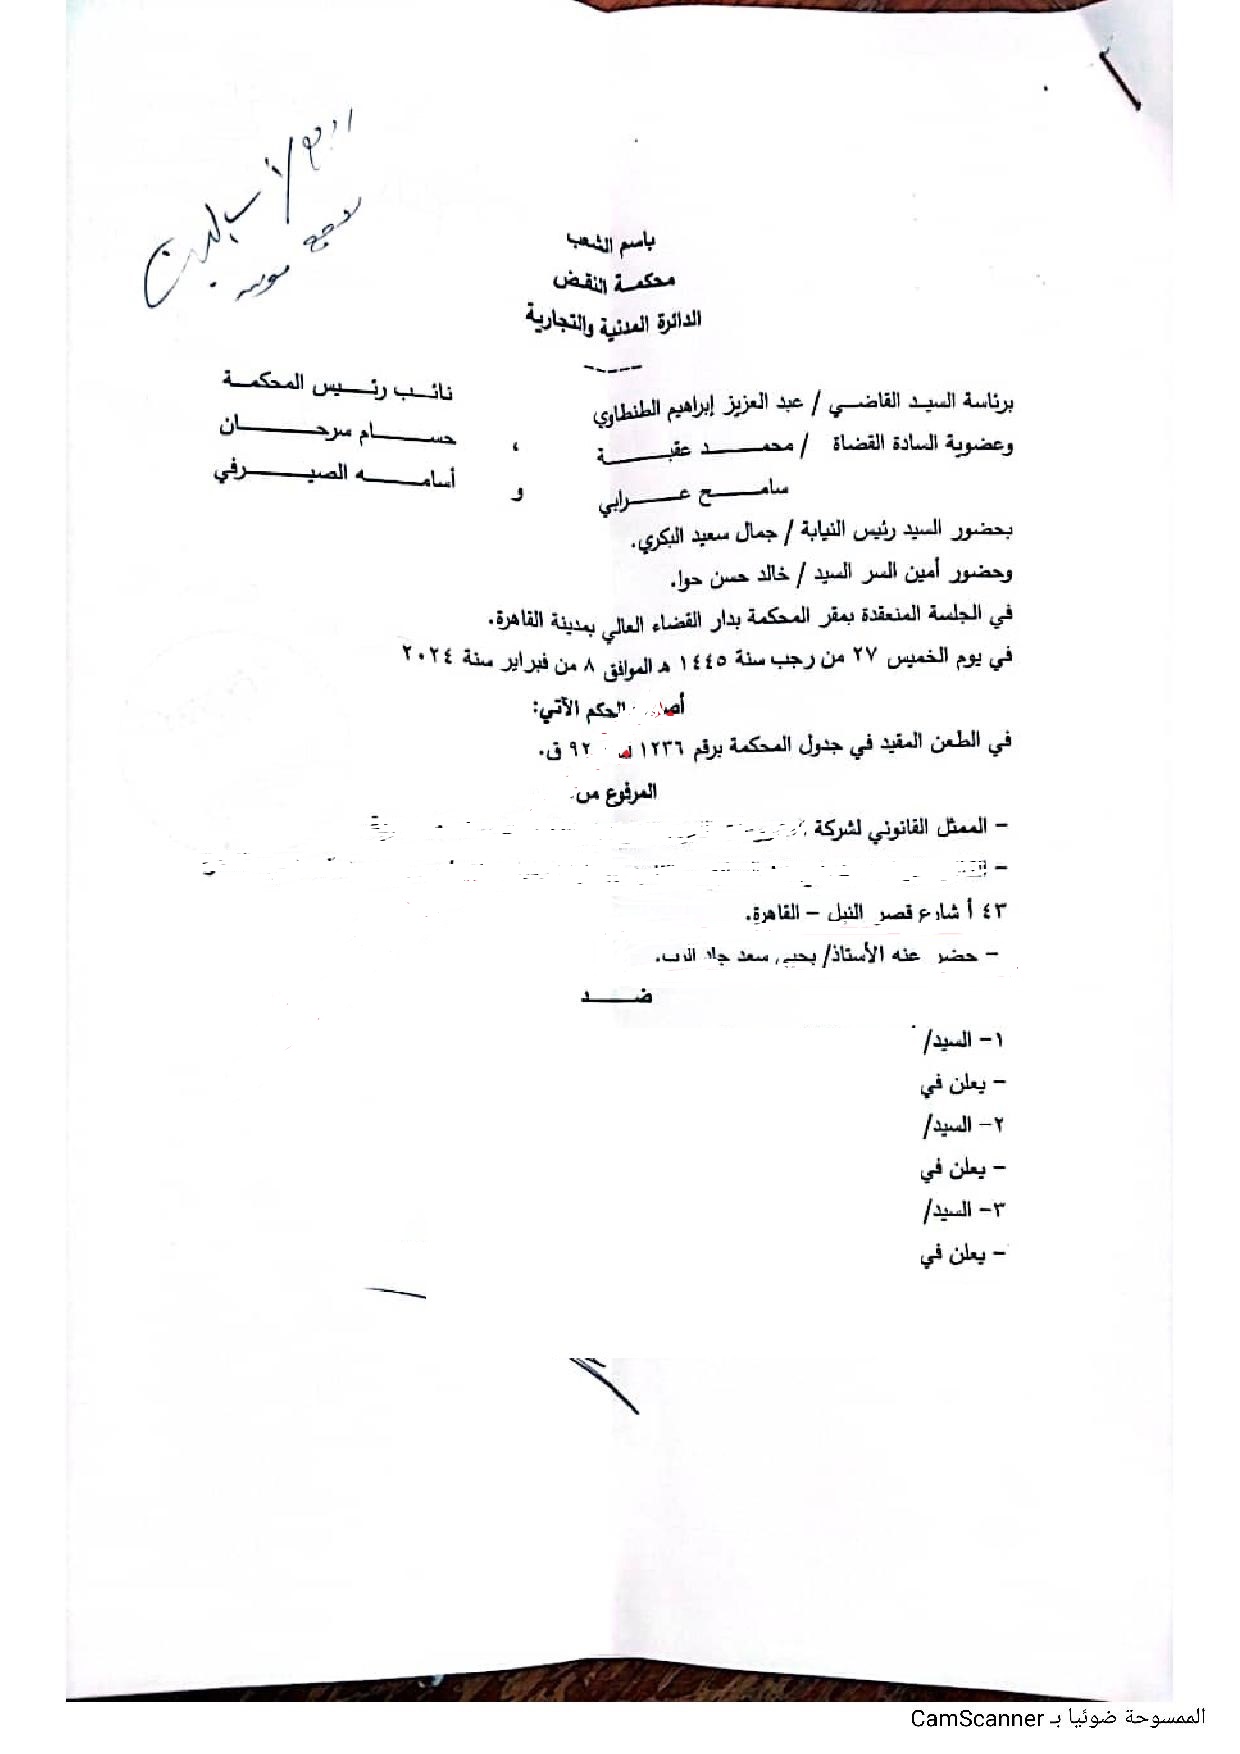 باسم الشعب
محكمة النقض
الدائرة المدنية والتجارية
برئاسة السيد القاضي / عبد العزيز إبراهيم الطنطاوي نائب رئيس المحكمة
وعضوية السادة القضاة / محمد عقبة ، حسام سرحان
سامح عرابي و أسامه الصيرفي
بحضور السيد رئيس النيابة / جمال سعيد البكري.
وحضور أمين السر السيد / خالد حسن حوا.
في الجلسة المنعقدة بمقر المحكمة بدار القضاء العالي بمدينة القاهرة.
في يوم الخميس ٢٧ من رجب سنة ١٤٤٥ هـ الموافق ٨ من فبراير سنة ٢٠٢٤
الحكم الآتي:
في الطعن المقيد في جدول المحكمة برقم ١٢٣٦ ٩٢ ق.
المرفوع من
– الممثل القانوني لشركة
٤٣ أ شارع قصر النيل – القاهرة.
– حضر عنه الأستاذ/ يحيى سعد جاد الرب.
ضد
١– السيد/
– يعلن في
٢– السيد/
– يعلن في
٣– السيد/
– يعلن في
الممسوحة ضوئيا بـ CamScanner